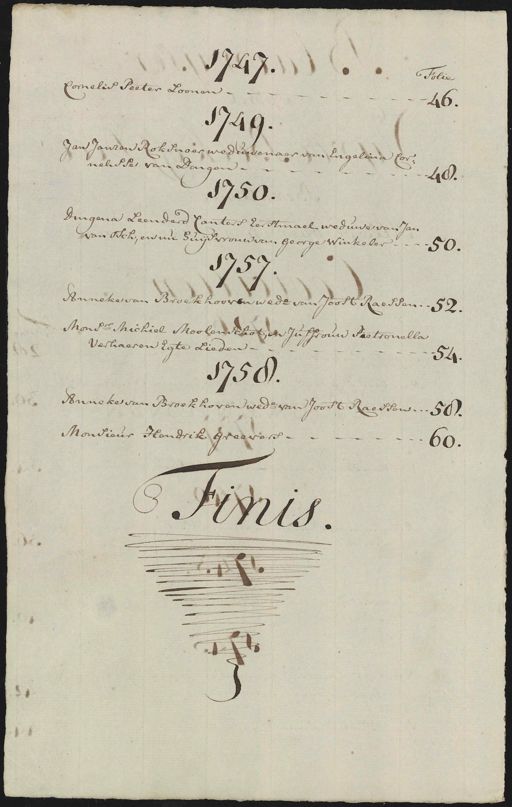 1747.
Folio
Cornelis Peeter Loonen - - - - - - - - 46.
1749.
Jan Janzan Rok Snoer, weduwenaer van Engelina Cor-
nelisse van Dongen - - - - - - - - 48.
1750.
Dingena Leendert Canters Eerstmael weduwe van Jan
van Esch, en nu Huysvrouw van George Winkeler - - - - 50.
1757.
Anneke van Broekhoven wede. van Joost Raessen - - - 52.
Monsr. Michiel Moolenschot, en Juffrouw Peetronella
Verhaesen Egte Lieden - - - - - - - - 54.
1758.
Anneke van Broekhoven wede. van Joost Raessen - - - 58.
Monsieur Hendrik Greevers - - - - - - 60.
Finis.